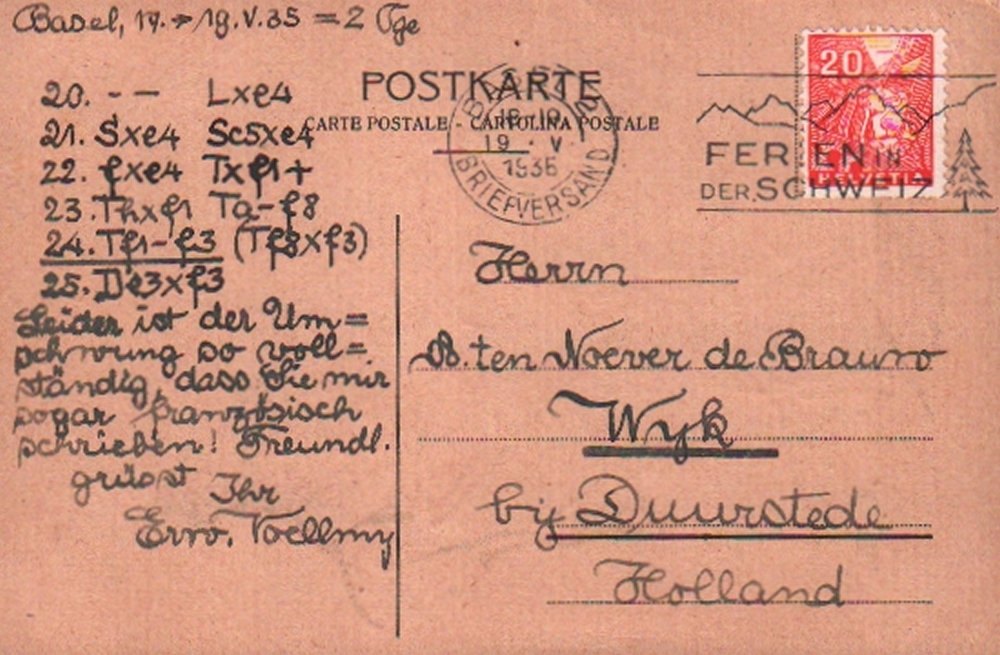 Basel, 17. → 19.V.35 = 2 Tge
20. -- Lxe4
21. Sxe4 Sc5xe4
22. fxe4 Txf1+
23. Thxf1 Ta-f8
24. Tf1-f3 (Tf8xf3)
25. De3xf3
Leider ist der Um=
schwung so voll=
ständig, dass Sie mir
sogar französisch
schrieben! Freundl.
grüsst Ihr
Erw. Voellmy
POSTKARTE
CARTE POSTALE - CARTOLINA POSTALE
19 · V
BRIEFVERSAND
20
HELVETIA
FERIEN IN
DER SCHWEIZ
Herrn
B. ten Noever de Brauw
Wyk
bij Duurstede
Holland